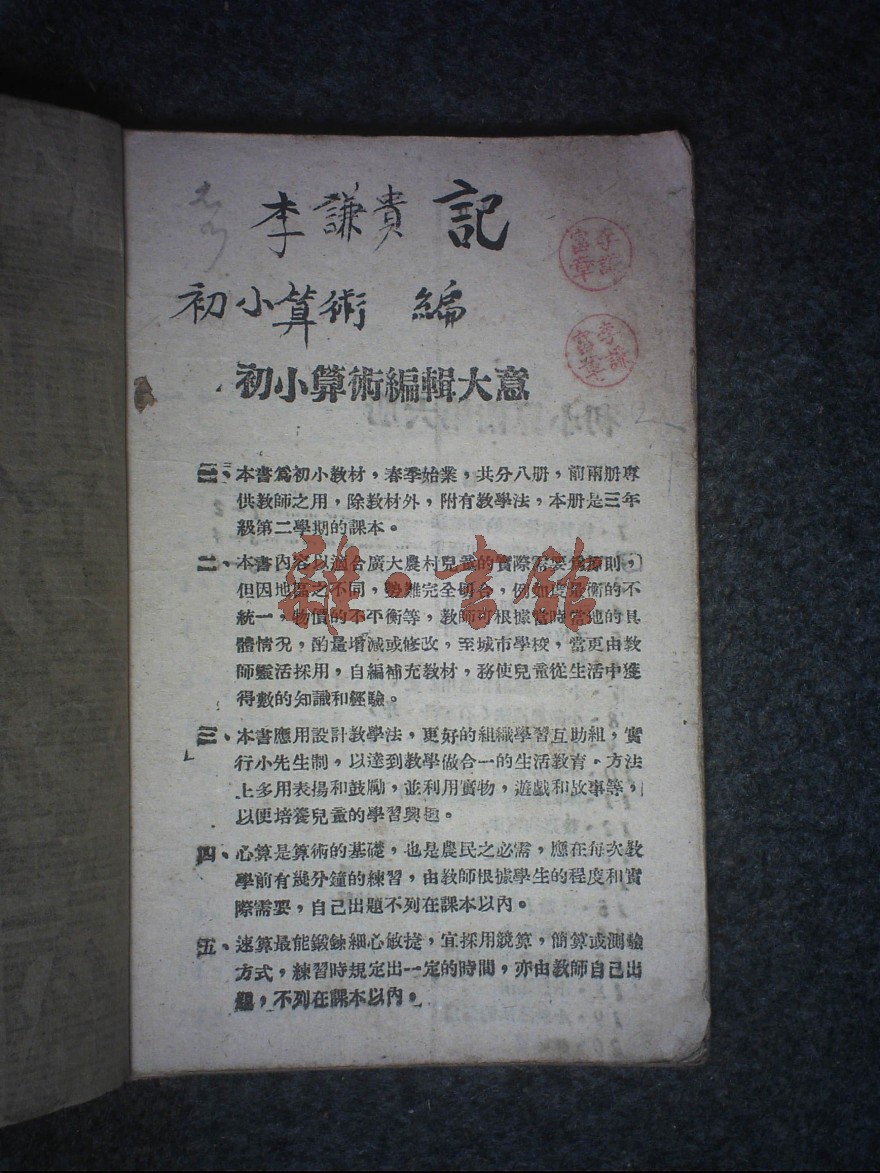 李謙貴 記
初小算術 編
初小算術編輯大意
一、本書為初小教材，春季始業，共分八册，前兩册專
供教師之用，除教材外，附有教學法，本册是三年
級第二學期的課本。
二、本書內容以適合廣大農村兒童的實際需要為原則，
但因地區之不同，勢難完全切合，例如度量衡的不
統一，物價的不平衡等，教師可根據當時當地的具
體情况，酌量增減或修改，至城市學校，當更由教
師靈活採用，自編補充教材，務使兒童從生活中獲
得數的知識和經驗。
三、本書應用設計教學法，更好的組織學習互助組，實
行小先生制，以達到教學做合一的生活教育。方法
上多用表揚和鼓勵，並利用實物，遊戲和故事等，
以便培養兒童的學習興趣。
四、心算是算術的基礎，也是農民之必需，應在每次教
學前有幾分鐘的練習，由教師根據學生的程度和實
際需要，自己出題不列在課本以內。
五、速算最能鍛鍊細心敏捷，宜採用競算，簡算或測驗
方式，練習時規定出一定的時間，亦由教師自己出
題，不列在課本以內。
雜·書館